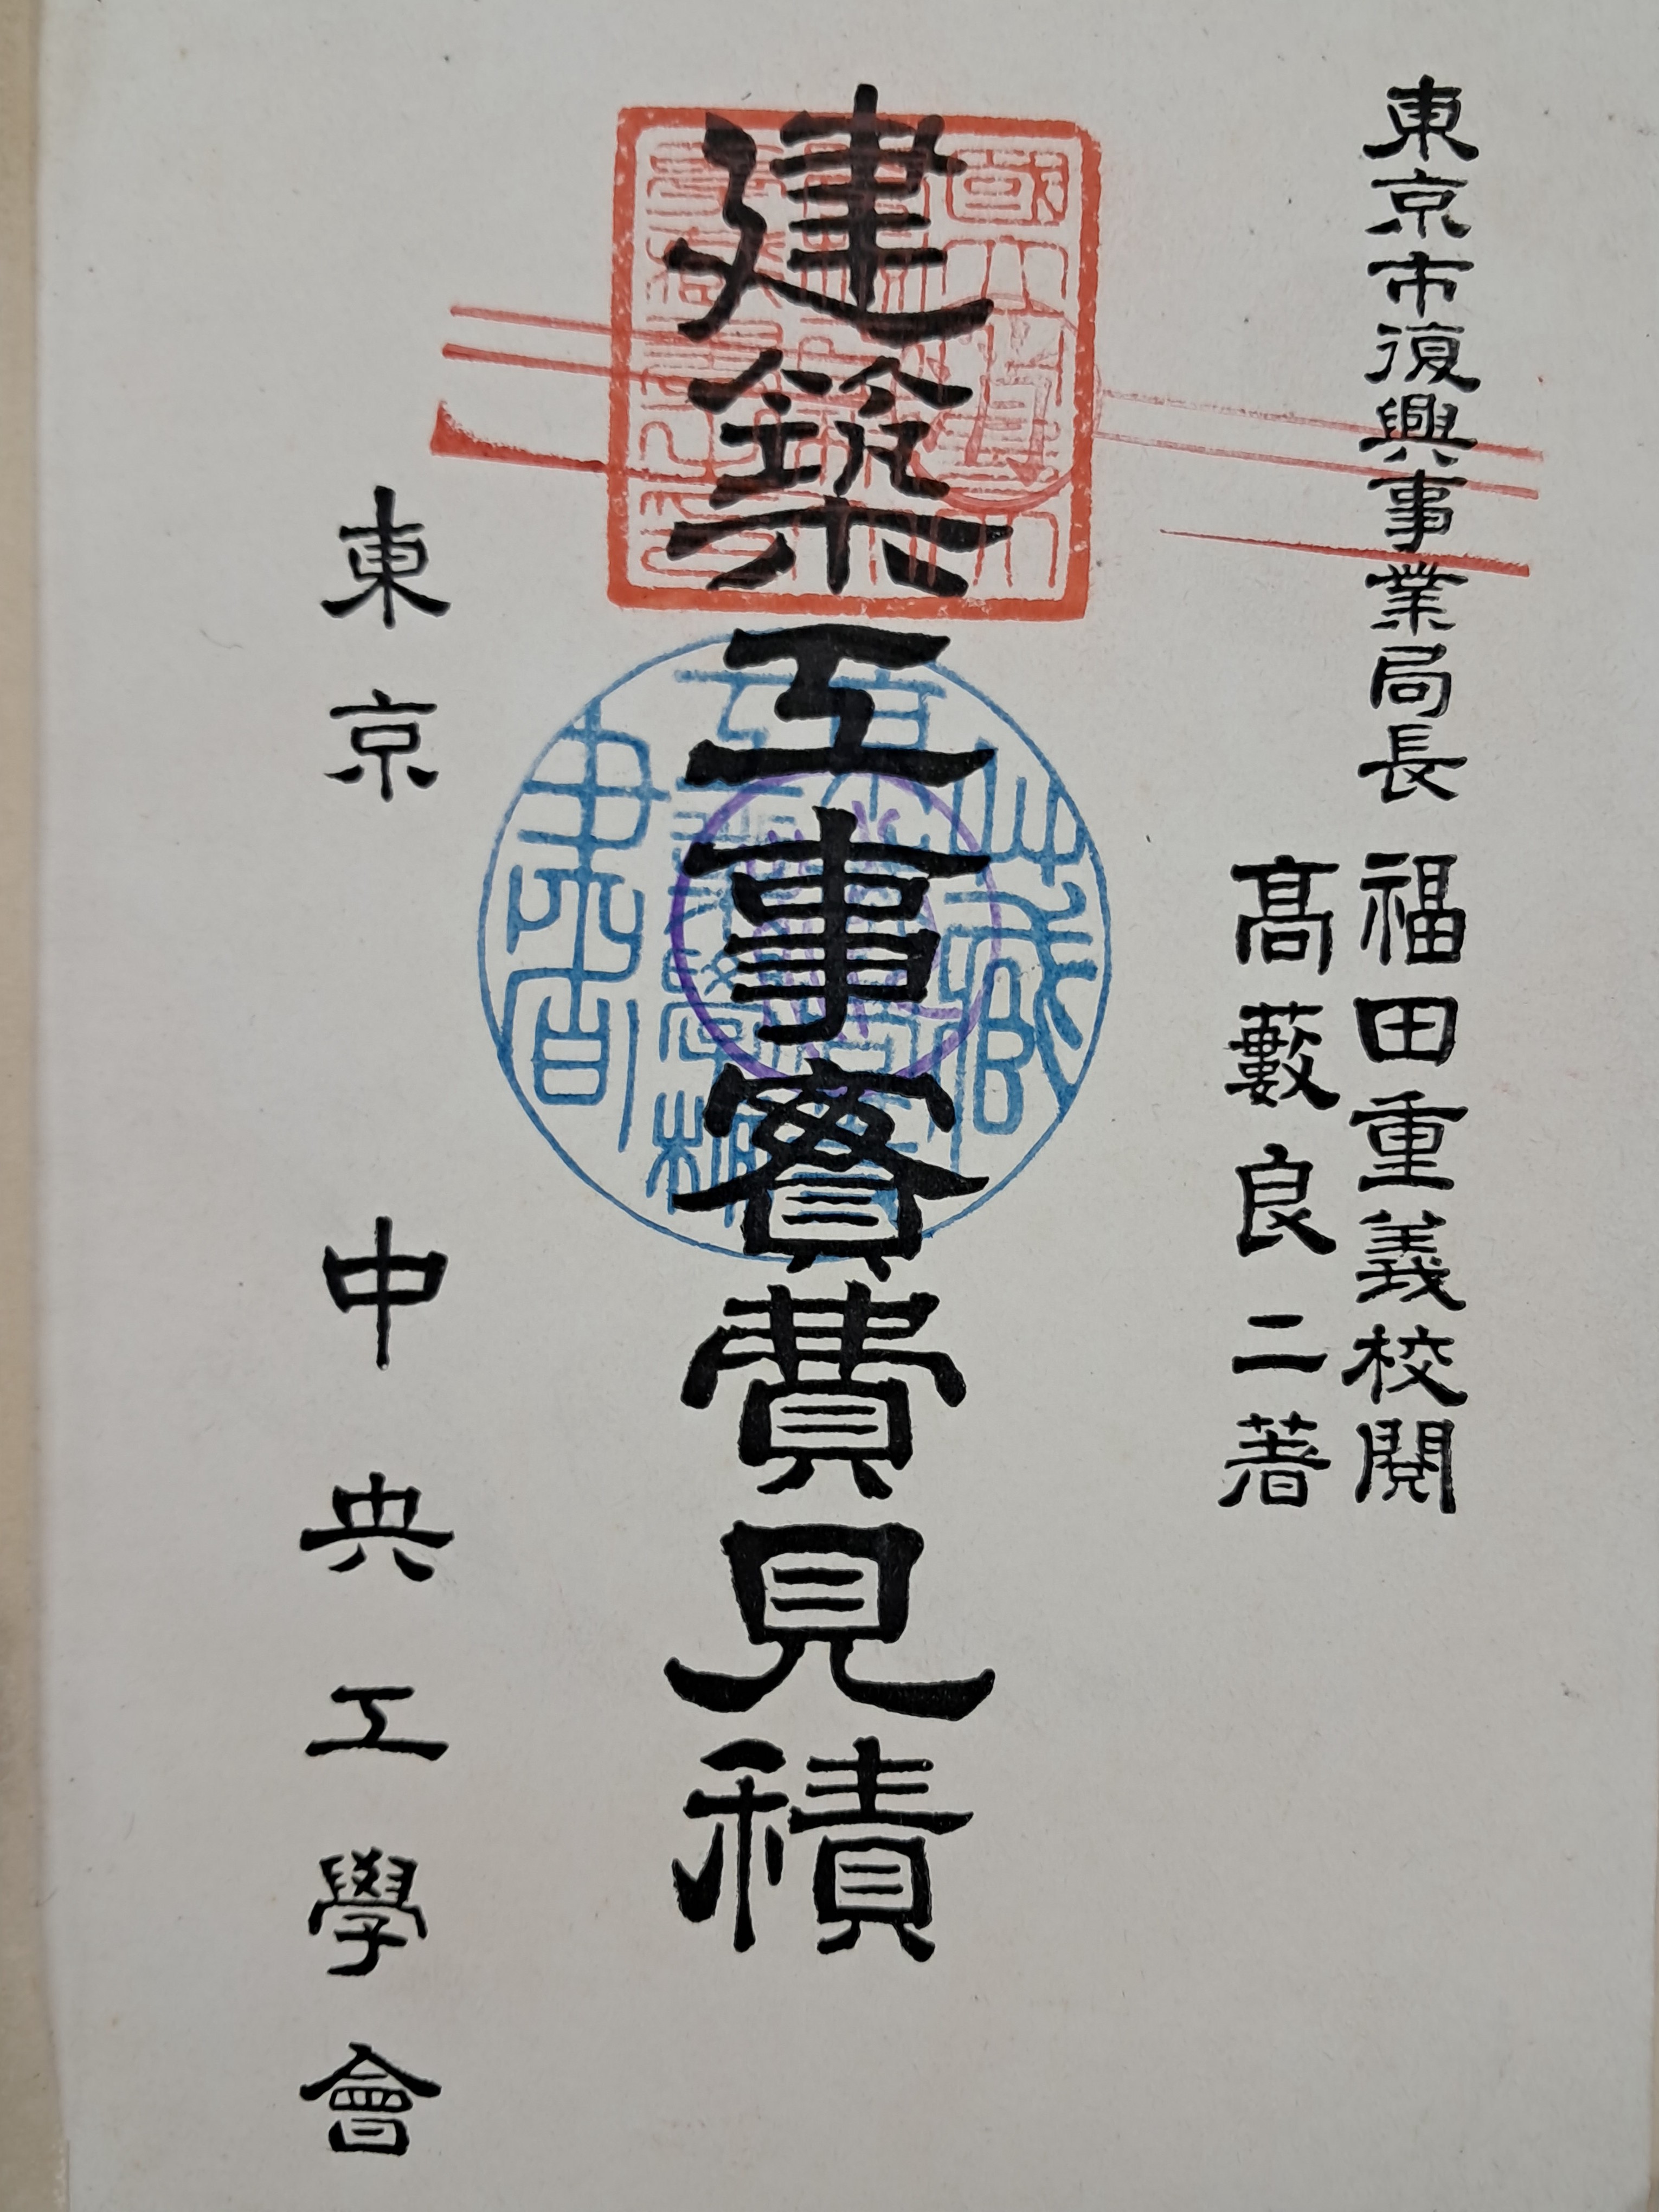 東京市復興事業局長 福田重義校閱
高藪良二著
建築工事實費見積
東京 中央工學會